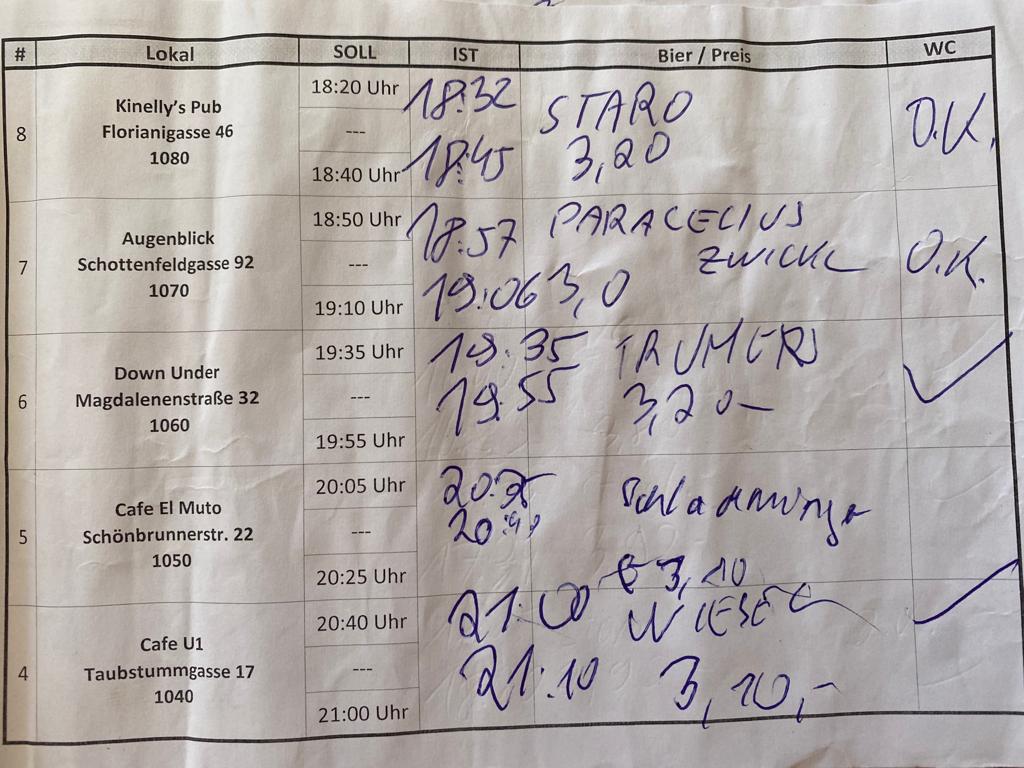 # Lokal SOLL IST Bier / Preis WC
8
Kinelly's Pub
Florianigasse 46
1080
18:20 Uhr
---
18:40 Uhr
18:32
18:45
STARO
3,20
O.K.
7
Augenblick
Schottenfeldgasse 92
1070
18:50 Uhr
---
19:10 Uhr
18:57
19:06
PARACELIUS
ZWICKL
3,0
O.K.
6
Down Under
Magdalenenstraße 32
1060
19:35 Uhr
---
19:55 Uhr
19:35
19:55
TRUMERS
3,20-
5
Cafe El Muto
Schönbrunnerstr. 22
1050
20:05 Uhr
---
20:25 Uhr
Schladminger
€ 3,10
4
Cafe U1
Taubstummgasse 17
1040
20:40 Uhr
---
21:00 Uhr
21:00
21:10
WIESE
3,10,-